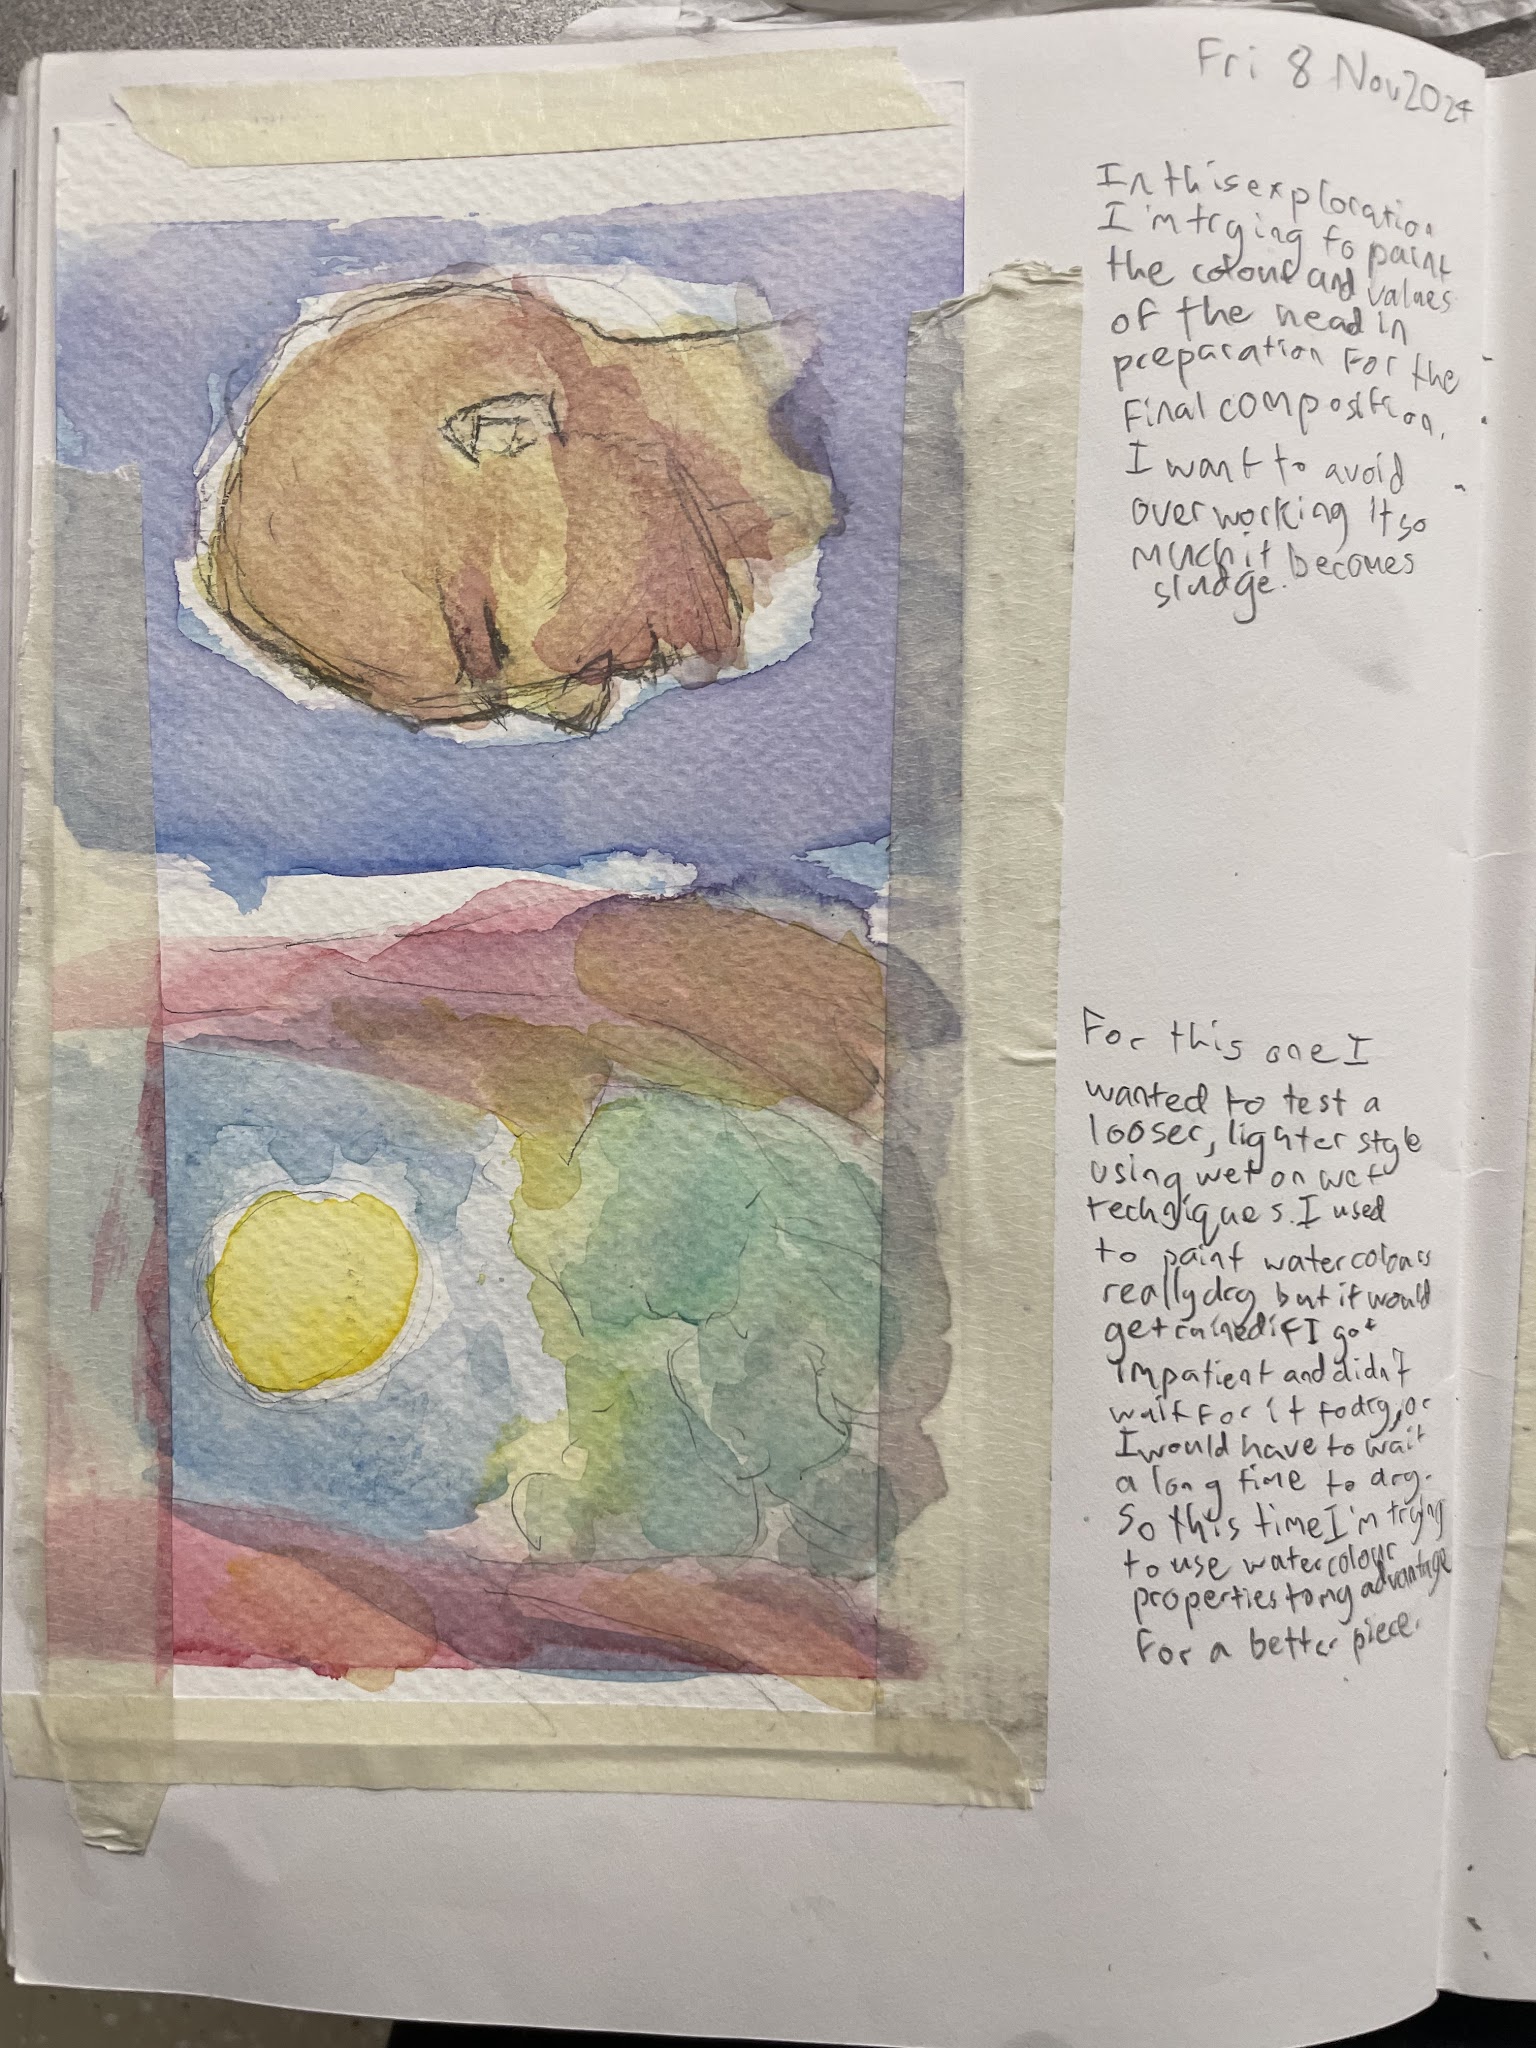 Fri 8 Nov 2024
In this exploration
I'm trying to paint
the colour and values
of the head in
preparation for the
final composition.
I want to avoid
overworking it so
much it becomes
sludge.
For this one I
wanted to test a
looser, lighter style
using wet on wet
techniques. I used
to paint watercolours
really dry but it would
get ruined if I got
impatient and didn't
wait for it to dry, or
I would have to wait
a long time to dry.
So this time I'm trying
to use watercolour
properties to my advantage
for a better piece.